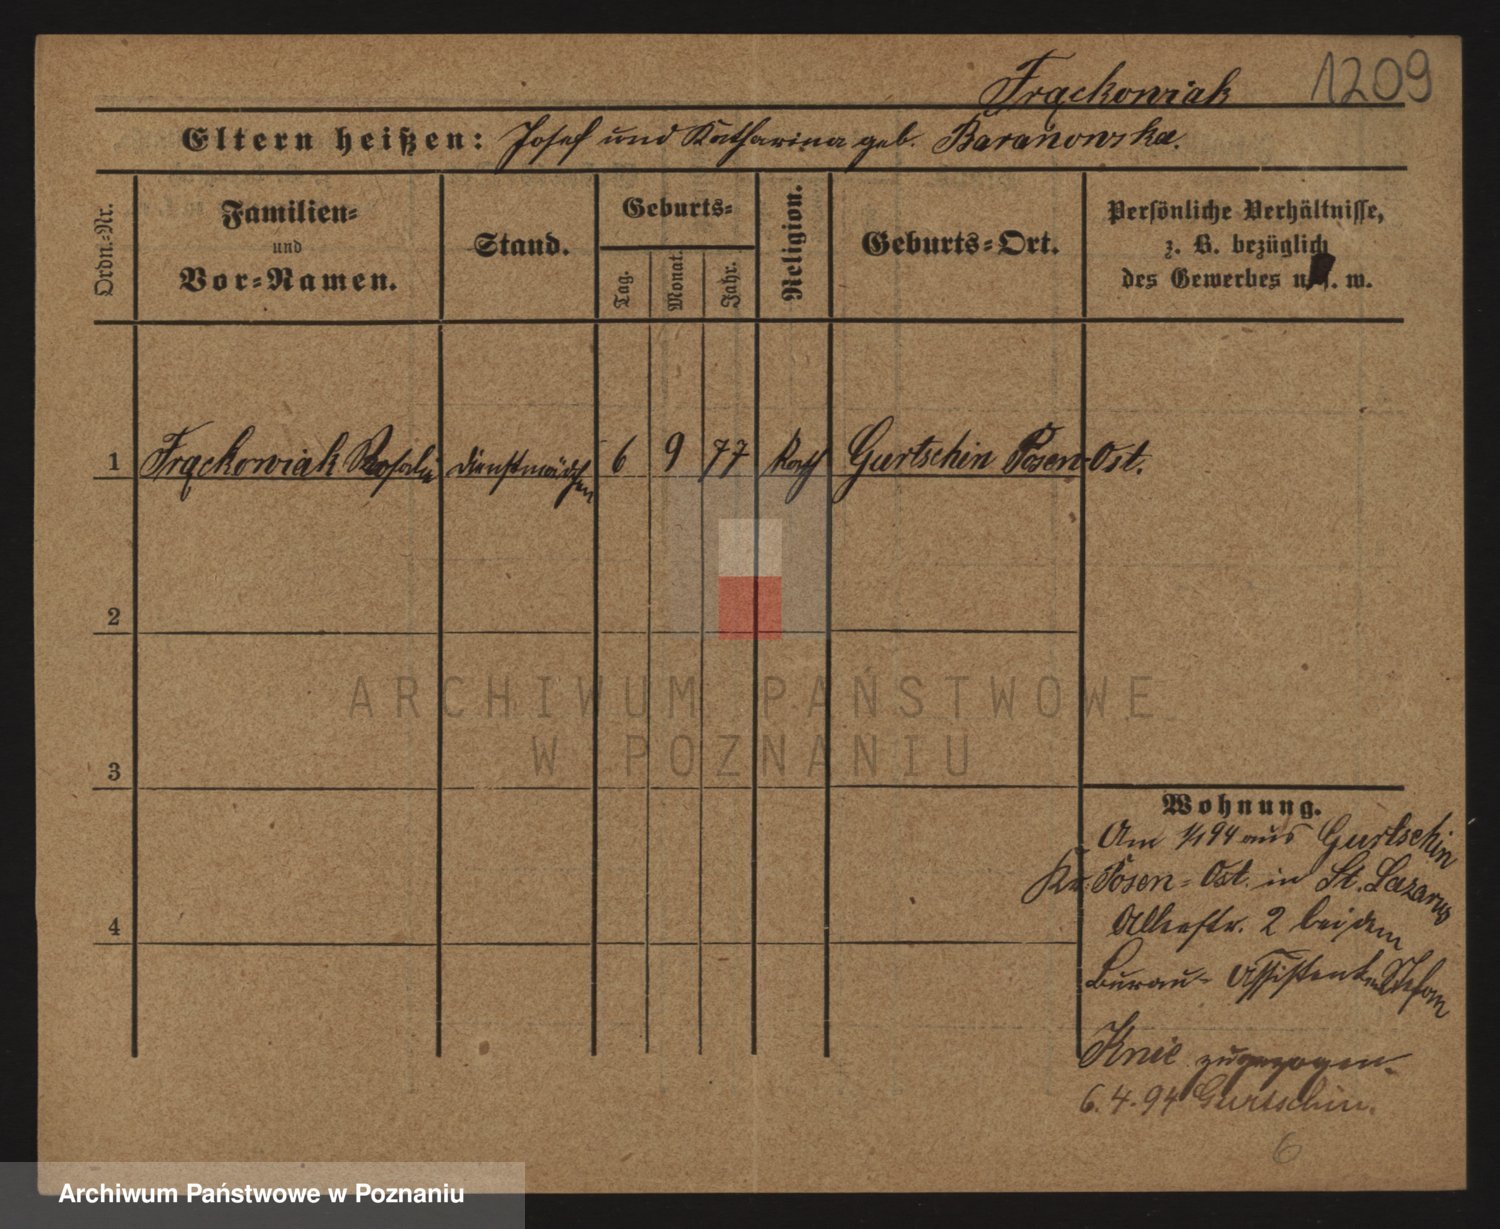 Frąckowiak 1209
Eltern heißen: Josef und Katharina geb. Baranowska.
Ordn.-Nr.
Familien-
und
Vor-Namen.
Stand.
Geburts-
Tag.
Monat.
Jahr.
Religion.
Geburts-Ort.
Persönliche Verhältnisse,
z. B. bezüglich
des Gewerbes u. s. w.
1 Frąckowiak Rosalie Dienstmädchen 6 9 77 Kath Gurtschin Posen-Ost.
2
3
4
Wohnung.
Am 1/1 94 aus Gurtschin
Kr. Posen-Ost. in St. Lazarus
Alleestr. 2 bei dem
Bureau-Assistenten Stefan
Knie zugezogen.
6.4.94 Gurtschin.
6
ARCHIWUM PAŃSTWOWE
W POZNANIU
Archiwum Państwowe w Poznaniu